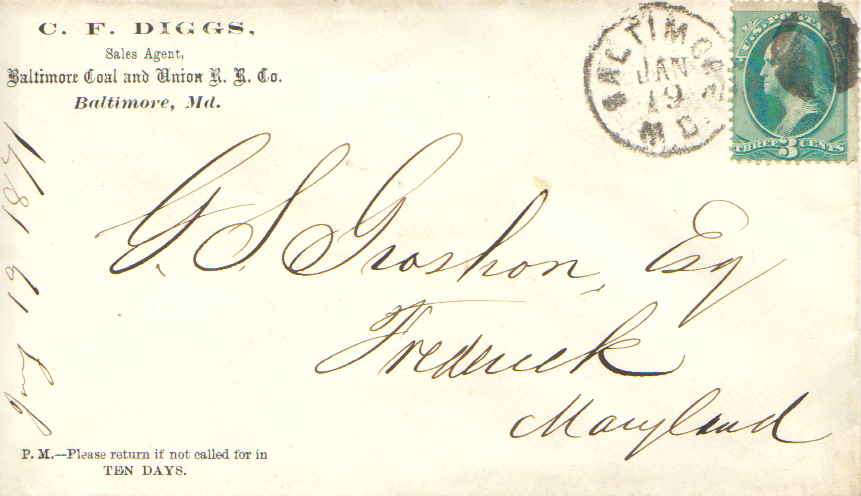 C. F. DIGGS,
Sales Agent,
Baltimore Coal and Union R. R. Co.
Baltimore, Md.
BALTIMORE
JAN
19
MD.
U.S. POSTAGE
THREE 3 CENTS
Jany 19 1871
G. S. Groshon, Esq
Frederick
Maryland
P. M.—Please return if not called for in
TEN DAYS.